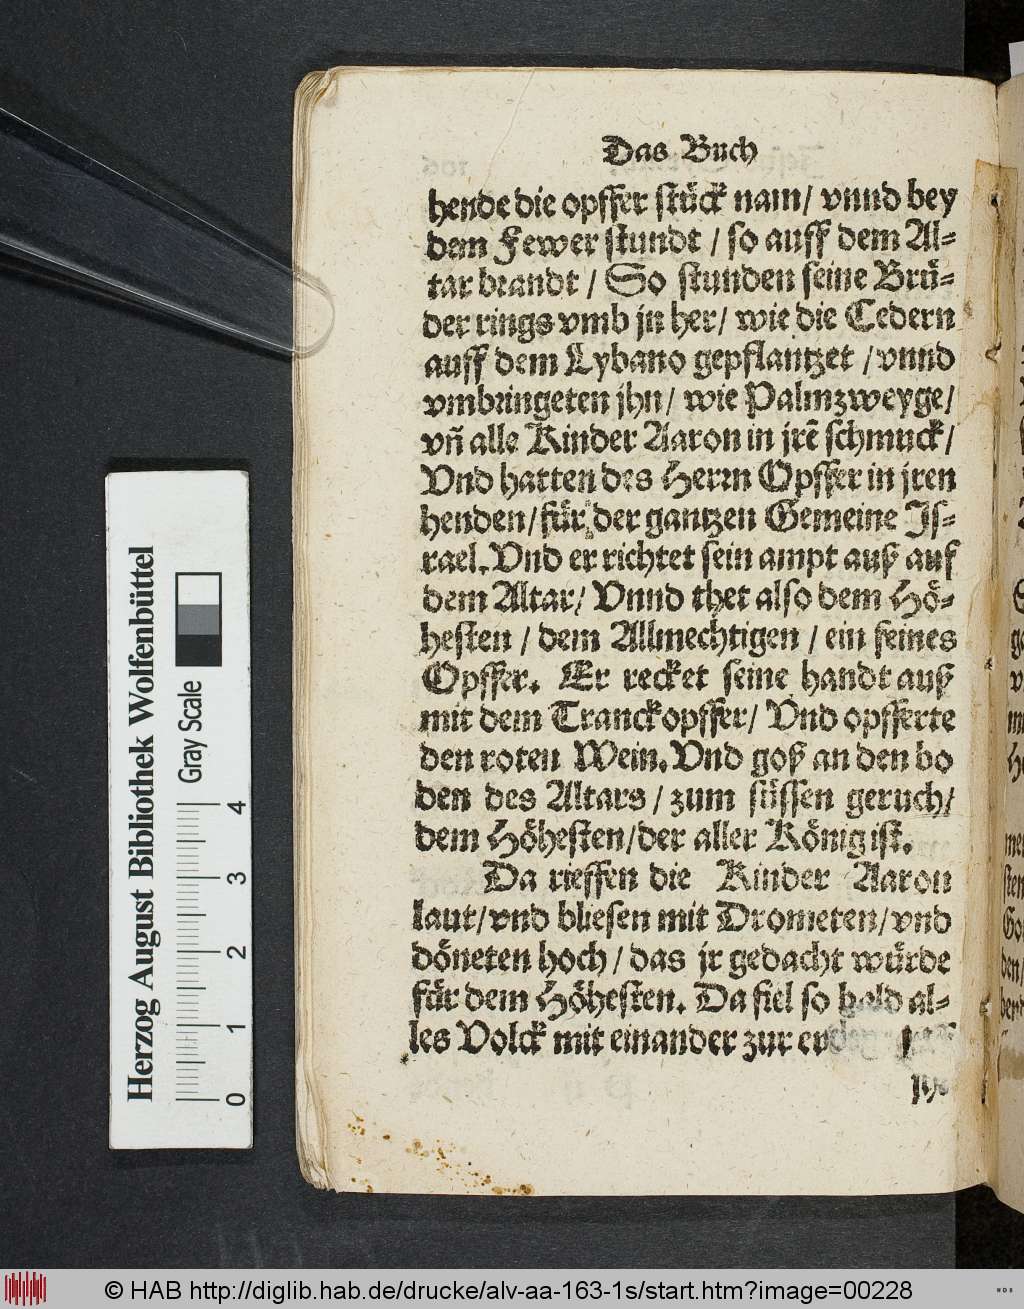 Das Buch
hende die opffer stück nam/ vnnd bey
dem Fewer stundt / so auff dem Al⸗
tar brandt / So stunden seine Brü⸗
der rings vmb jn her/ wie die Cedern
auff dem Lybano gepflantzet / vnnd
vmbringeten jhn/ wie Palmzweyge/
vñ alle Kinder Aaron in jrē schmuck/
Vnd hatten des Herrn Opffer in jren
henden/ für der gantzen Gemeine Is⸗
rael. Vnd er richtet sein ampt auß auf
dem Altar/ Vnnd thet also dem Hö⸗
hesten / dem Allmechtigen / ein feines
Opffer. Er recket seine handt auß
mit dem Tranckopffer/ Vnd opfferte
den roten Wein. Vnd goß an den bo
den des Altars / zum süssen geruch/
dem Höhesten/ der aller König ist.
Da rieffen die Kinder Aaron
laut/ vnd bliesen mit Drometen/ vnd
döneten hoch/ das jr gedacht würde
für dem Höhesten. Da fiel so bald al⸗
les Volck mit einander zur
Herzog August Bibliothek Wolfenbüttel
Gray Scale
0 1 2 3 4
© HAB http://diglib.hab.de/drucke/alv-aa-163-1s/start.htm?image=00228